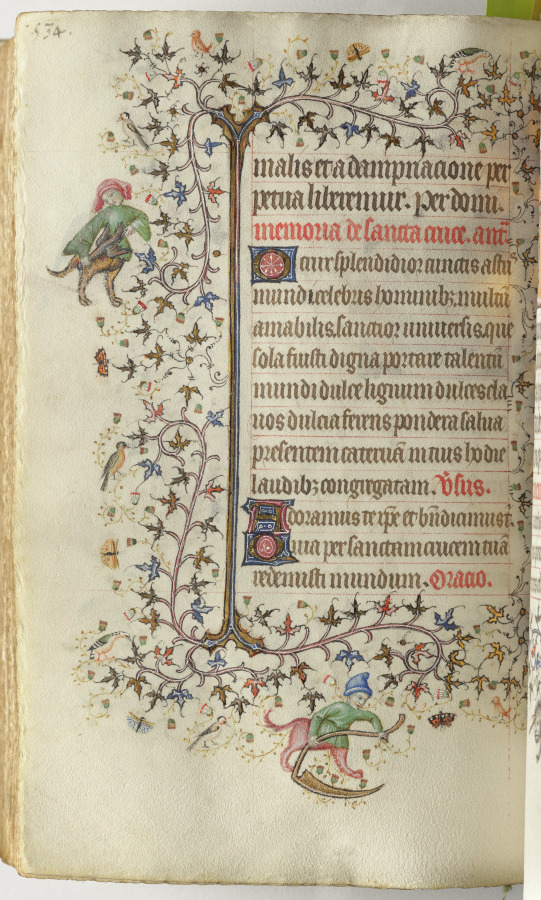 534.
malis et a dampnacione per
petua liberemur. Per domi.
memoria de sancta cruce. ant̄.
O crux splendidior cunctis astr̄
mundi celebris hominibꝫ multū
amabilis sanctior uniuersis. que
sola fuisti digna portare talentū
mundi dulce lignum dulces cla
uos dulcia ferens pondera salua
presentem cateruā in tuis hodie
laudibꝫ congregatam. V̄sus.
Adoramus te xp̄e et bn̄dicimus t̄.
Quia per sanctam crucem tuā
redemisti mundum. Oracio.